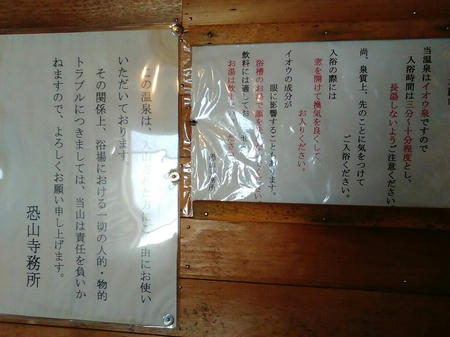 当温泉はイオウ泉ですので
入浴時間は三分～十分程度とし、
長湯しないようご注意ください。
尚、泉質上、先のことに気をつけて
ご入浴ください。
入浴の際には
窓を開けて換気を良くして
お入りください。
イオウの成分が
眼に影響することもあります。
浴槽のお湯で顔を
飲料には適して
お湯は飲
この温泉は、入山 方に 自由にお使い
いただいております。
その関係上、浴場における一切の人的・物的
トラブルにつきましては、当山は責任を負いか
ねますので、よろしくお願い申し上げます。
恐山寺務所